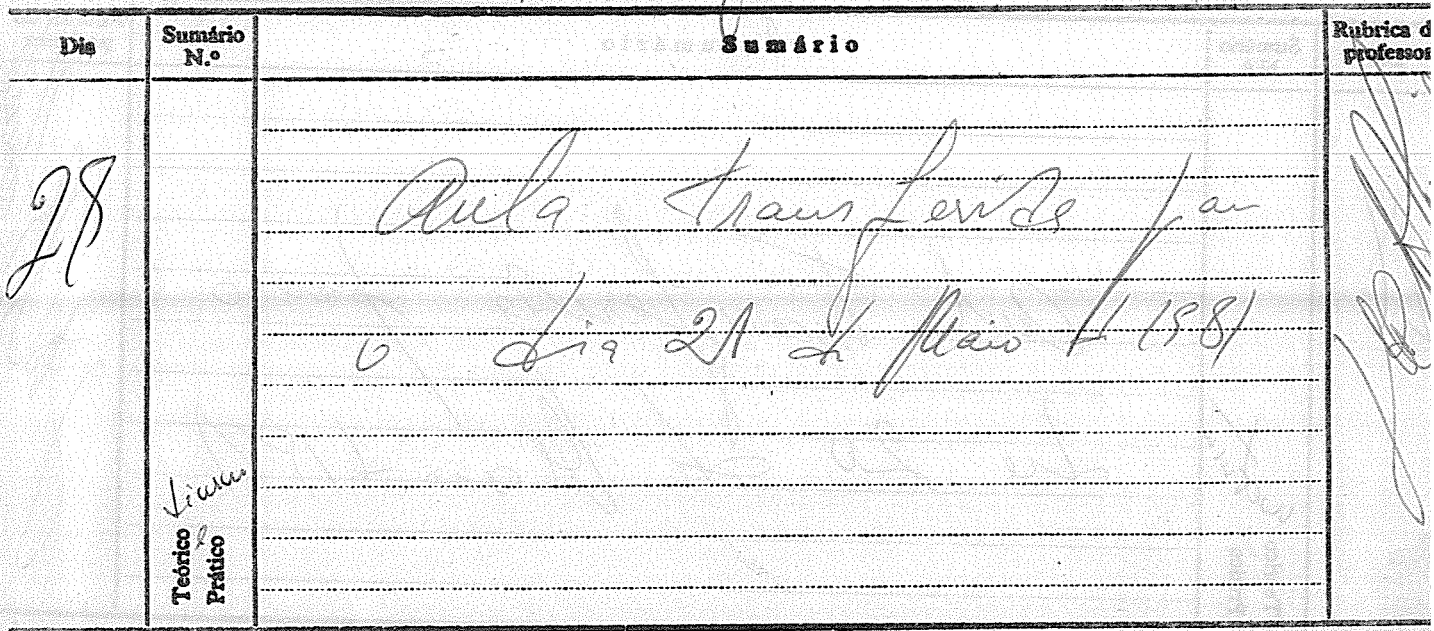 Dia
Sumário N.º
Sumário
Rubrica d
professor
28
Aula transferida para
o dia 21 de Maio de 1981
Teórico e
Prático